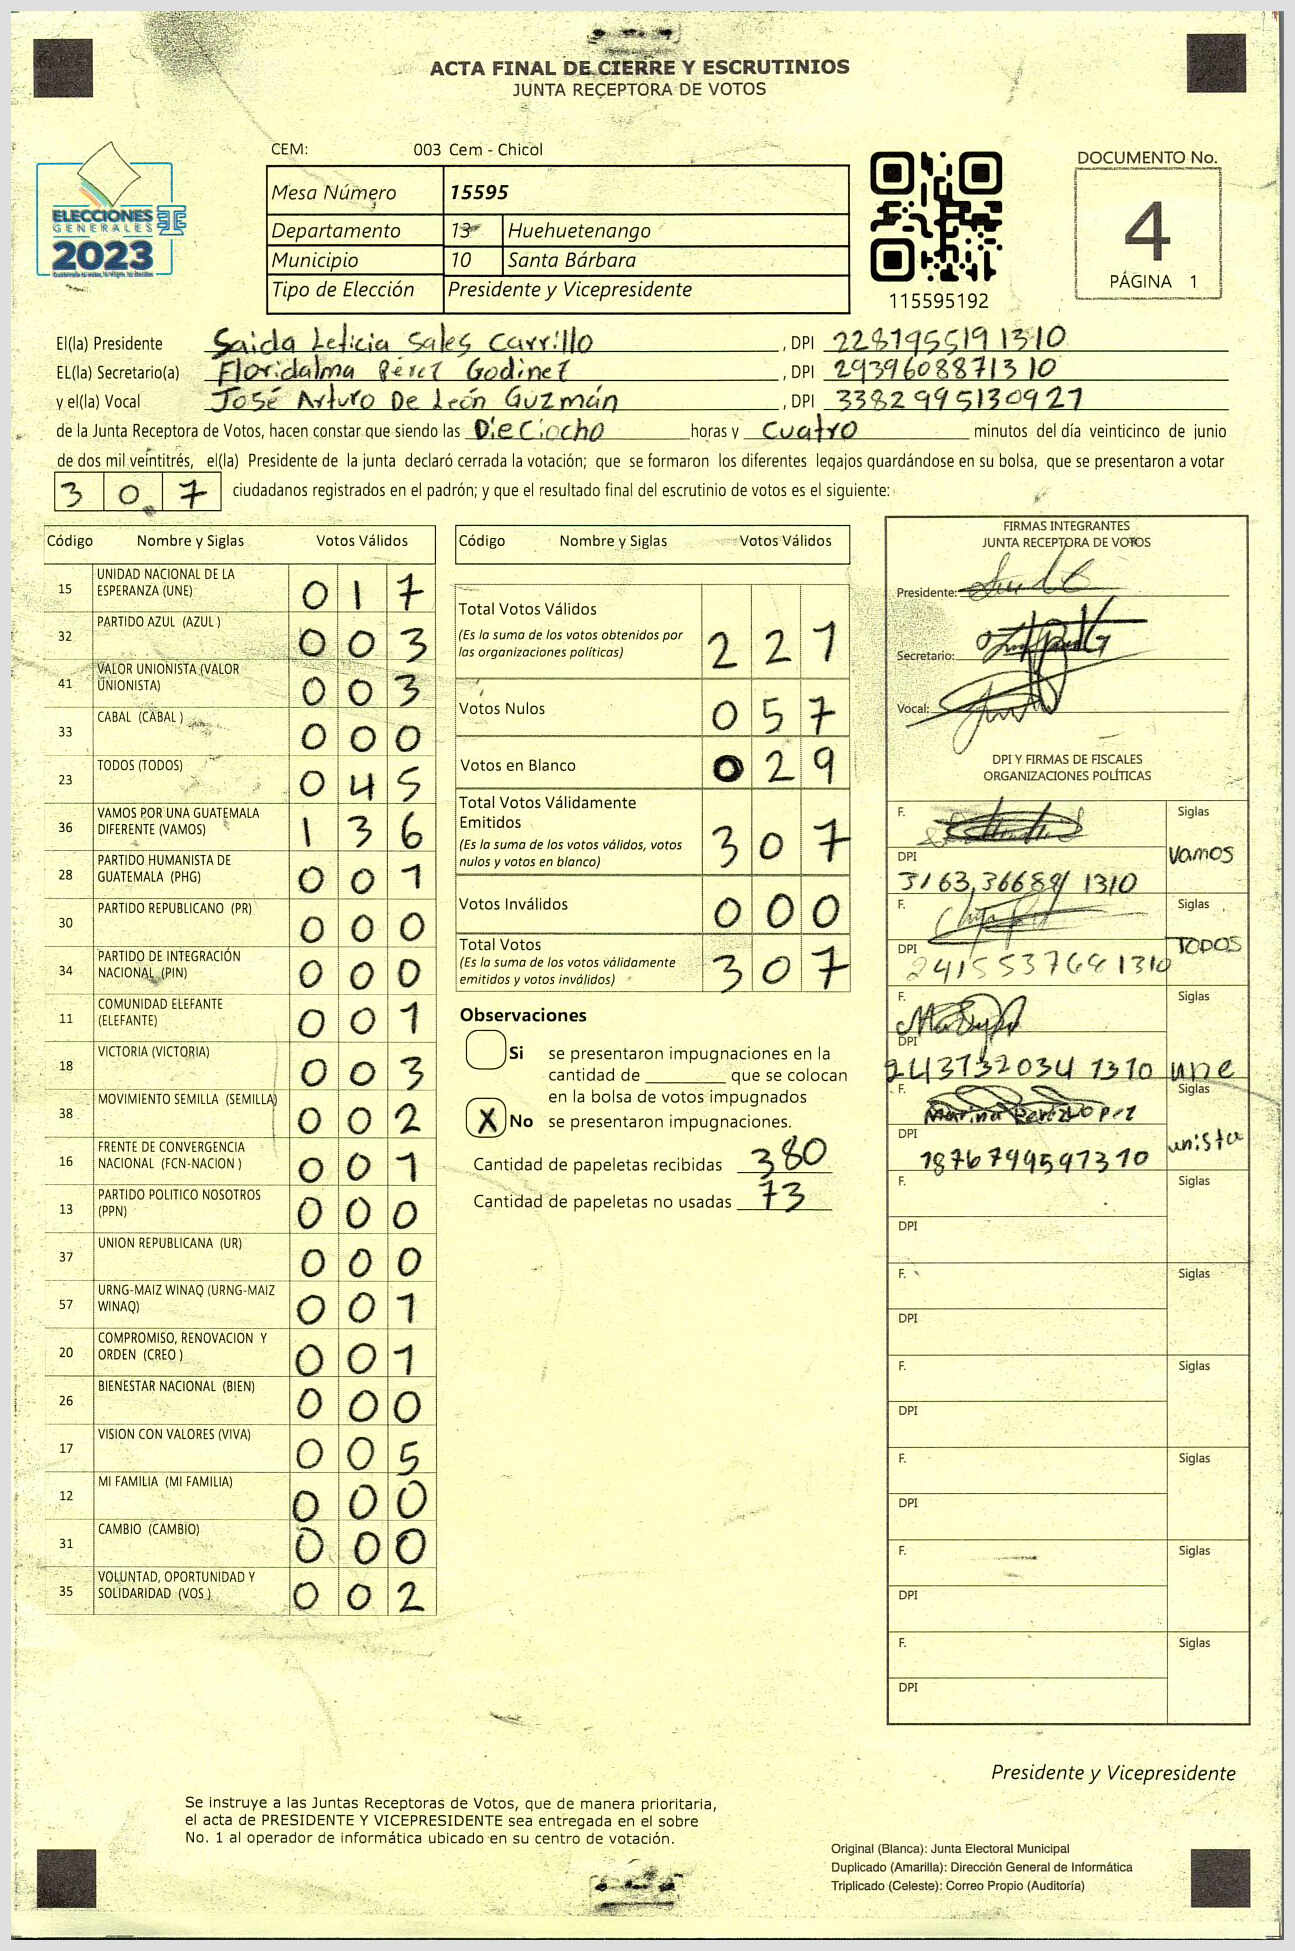 ACTA FINAL DE CIERRE Y ESCRUTINIOS
JUNTA RECEPTORA DE VOTOS
CEM: 003 Cem - Chicol
Mesa Número 15595
Departamento 13 Huehuetenango
Municipio 10 Santa Bárbara
Tipo de Elección Presidente y Vicepresidente
ELECCIONES
GENERALES
2023
115595192
DOCUMENTO No.
4
PÁGINA 1
El(la) Presidente Saida Leticia Sales Carrillo, DPI 2287955191310
EL(la) Secretario(a) Floridalma Pérez Godinez, DPI 2939608871310
y el(la) Vocal José Arturo De León Guzmán, DPI 3382995130927
de la Junta Receptora de Votos, hacen constar que siendo las DieCiocho horas y cuatro minutos del día veinticinco de junio
de dos mil veintitrés, el(la) Presidente de la junta declaró cerrada la votación; que se formaron los diferentes legajos guardándose en su bolsa, que se presentaron a votar
3 0 7 ciudadanos registrados en el padrón; y que el resultado final del escrutinio de votos es el siguiente:
Código Nombre y Siglas Votos Válidos
15 UNIDAD NACIONAL DE LA ESPERANZA (UNE) 0 1 7
32 PARTIDO AZUL (AZUL ) 0 0 3
41 VALOR UNIONISTA (VALOR UNIONISTA) 0 0 3
33 CABAL (CABAL ) 0 0 0
23 TODOS (TODOS) 0 4 5
36 VAMOS POR UNA GUATEMALA DIFERENTE (VAMOS) 1 3 6
28 PARTIDO HUMANISTA DE GUATEMALA (PHG) 0 0 1
30 PARTIDO REPUBLICANO (PR) 0 0 0
34 PARTIDO DE INTEGRACIÓN NACIONAL (PIN) 0 0 0
11 COMUNIDAD ELEFANTE (ELEFANTE) 0 0 1
18 VICTORIA (VICTORIA) 0 0 3
38 MOVIMIENTO SEMILLA (SEMILLA) 0 0 2
16 FRENTE DE CONVERGENCIA NACIONAL (FCN-NACION ) 0 0 1
13 PARTIDO POLITICO NOSOTROS (PPN) 0 0 0
37 UNION REPUBLICANA (UR) 0 0 0
57 URNG-MAIZ WINAQ (URNG-MAIZ WINAQ) 0 0 1
20 COMPROMISO, RENOVACION Y ORDEN (CREO ) 0 0 1
26 BIENESTAR NACIONAL (BIEN) 0 0 0
17 VISION CON VALORES (VIVA) 0 0 5
12 MI FAMILIA (MI FAMILIA) 0 0 0
31 CAMBIO (CAMBIO) 0 0 0
35 VOLUNTAD, OPORTUNIDAD Y SOLIDARIDAD (VOS ) 0 0 2
Código Nombre y Siglas Votos Válidos
Total Votos Válidos 2 2 1
(Es la suma de los votos obtenidos por
las organizaciones políticas)
Votos Nulos 0 5 7
Votos en Blanco 0 2 9
Total Votos Válidamente
Emitidos 3 0 7
(Es la suma de los votos válidos, votos
nulos y votos en blanco)
Votos Inválidos 0 0 0
Total Votos 3 0 7
(Es la suma de los votos válidamente
emitidos y votos inválidos)
Observaciones
Si se presentaron impugnaciones en la
cantidad de ________ que se colocan
en la bolsa de votos impugnados
X No se presentaron impugnaciones.
Cantidad de papeletas recibidas 380
Cantidad de papeletas no usadas 73
FIRMAS INTEGRANTES
JUNTA RECEPTORA DE VOTOS
Presidente:
Secretario:
Vocal:
DPI Y FIRMAS DE FISCALES
ORGANIZACIONES POLÍTICAS
F. Siglas
vamos
DPI
F. Siglas
TODOS
DPI
2415537681310
F. Siglas
DPI
2437320341310 une
F. Siglas
Marina Perez Lopez
DPI unista
1876799597310
F. Siglas
DPI
F. Siglas
DPI
F. Siglas
DPI
F. Siglas
DPI
F. Siglas
DPI
F. Siglas
DPI
Presidente y Vicepresidente
Se instruye a las Juntas Receptoras de Votos, que de manera prioritaria,
el acta de PRESIDENTE Y VICEPRESIDENTE sea entregada en el sobre
No. 1 al operador de informática ubicado en su centro de votación.
Original (Blanca): Junta Electoral Municipal
Duplicado (Amarilla): Dirección General de Informática
Triplicado (Celeste): Correo Propio (Auditoría)